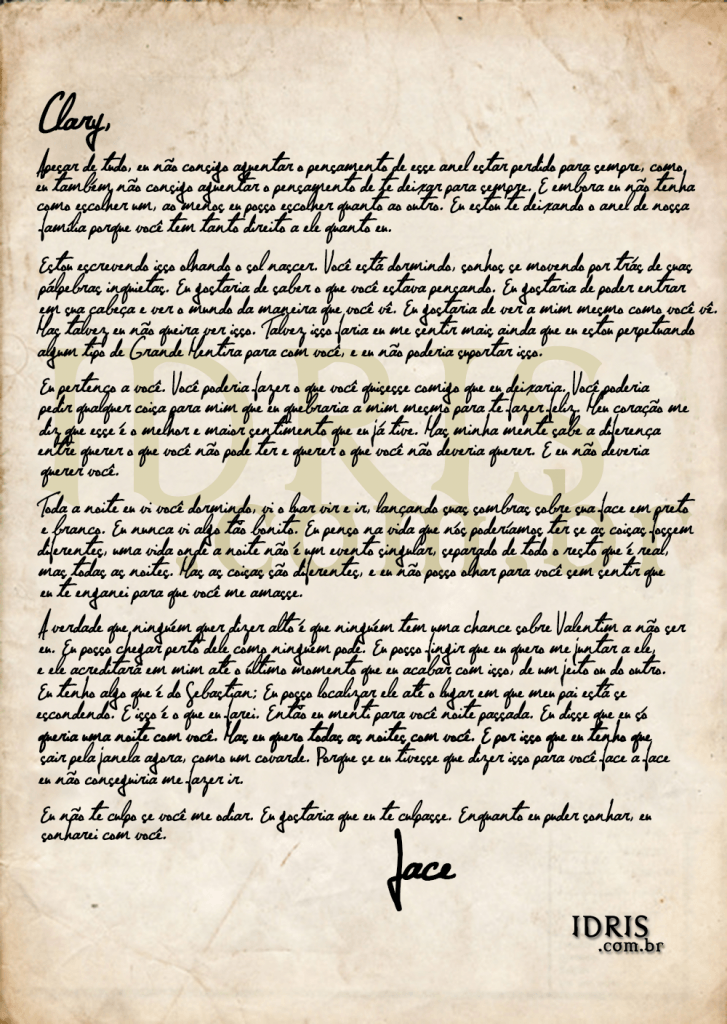 Clary,
Apesar de tudo, eu não consigo aguentar o pensamento de esse anel estar perdido para sempre, como
eu também não consigo aguentar o pensamento de te deixar para sempre. E embora eu não tenha
como escolher um, ao menos eu posso escolher quanto ao outro. Eu estou te deixando o anel de nossa
família porque você tem tanto direito a ele quanto eu.
Estou escrevendo isso olhando o sol nascer. Você está dormindo, sonhos se movendo por trás de suas
pálpebras inquietas. Eu gostaria de saber o que você estava pensando. Eu gostaria de poder entrar
em sua cabeça e ver o mundo da maneira que você vê. Eu gostaria de ver a mim mesmo como você vê.
Mas talvez eu não queira ver isso. Talvez isso faria eu me sentir mais ainda que eu estou perpetuando
algum tipo de Grande Mentira para com você, e eu não poderia suportar isso.
Eu pertenço a você. Você poderia fazer o que você quisesse comigo que eu deixaria. Você poderia
pedir qualquer coisa para mim que eu quebraria a mim mesmo para te fazer feliz. Meu coração me
diz que esse é o melhor e maior sentimento que eu já tive. Mas minha mente sabe a diferença
entre querer o que você não pode ter e querer o que você não deveria querer. E eu não deveria
querer você.
Toda a noite eu vi você dormindo, vi o luar vir e ir, lançando suas sombras sobre sua face em preto
e branco. Eu nunca vi algo tão bonito. Eu penso na vida que nós poderíamos ter se as coisas fossem
diferentes, uma vida onde a noite não é um evento singular, separado de todo o resto que é real,
mas todas as noites. Mas as coisas são diferentes, e eu não posso olhar para você sem sentir que
eu te enganei para que você me amasse.
A verdade que ninguém quer dizer alto é que ninguém tem uma chance sobre Valentim a não ser
eu. Eu posso chegar perto dele como ninguém pode. Eu posso fingir que eu quero me juntar a ele,
e ele acreditará em mim até o último momento que eu acabar com isso, de um jeito ou do outro.
Eu tenho algo que é do Sebastian; Eu posso localizar ele até o lugar em que meu pai está se
escondendo. E isso é o que eu farei. Então eu menti para você noite passada. Eu disse que eu só
queria uma noite com você. Mas eu quero todas as noites com você. E por isso que eu tenho que
sair pela janela agora, como um covarde. Porque se eu tivesse que dizer isso para você face a face
eu não conseguiria me fazer ir.
Eu não te culpo se você me odiar. Eu gostaria que eu te culpasse. Enquanto eu puder sonhar, eu
sonharei com você.
Jace
IDRIS
.com.br